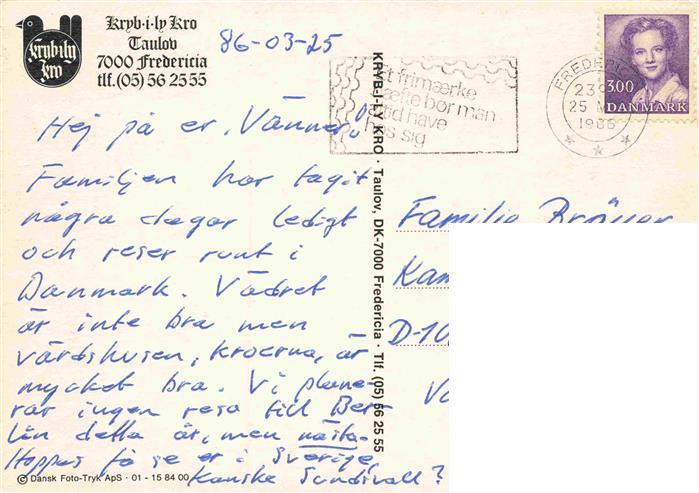 Kryb·i·ly Kro
Taulov
7000 Fredericia
tlf. (05) 56 2555
Kryb i ly
Kro
86-03-25
Hej på er, Vänner!
Familjen har tagit
några dagar ledigt
och reser runt i
Danmark. Vädret
är inte bra men
värdshusen, kroerna, är
mycket bra. Vi plane-
rar ingen resa till Ber-
lin detta år, men nästa.
Hoppas få se er i Sverige,
Kanske Sundsvall?
© Dansk Foto-Tryk ApS · 01 - 15 84 00
KRYB-I-LY KRO · Taulov, DK-7000 Fredericia · Tlf. (05) 56 25 55
frimærke
bør man
have
hos sig
FREDERI
25
1986
3.00
DANMARK
Familie
Kam
D-10